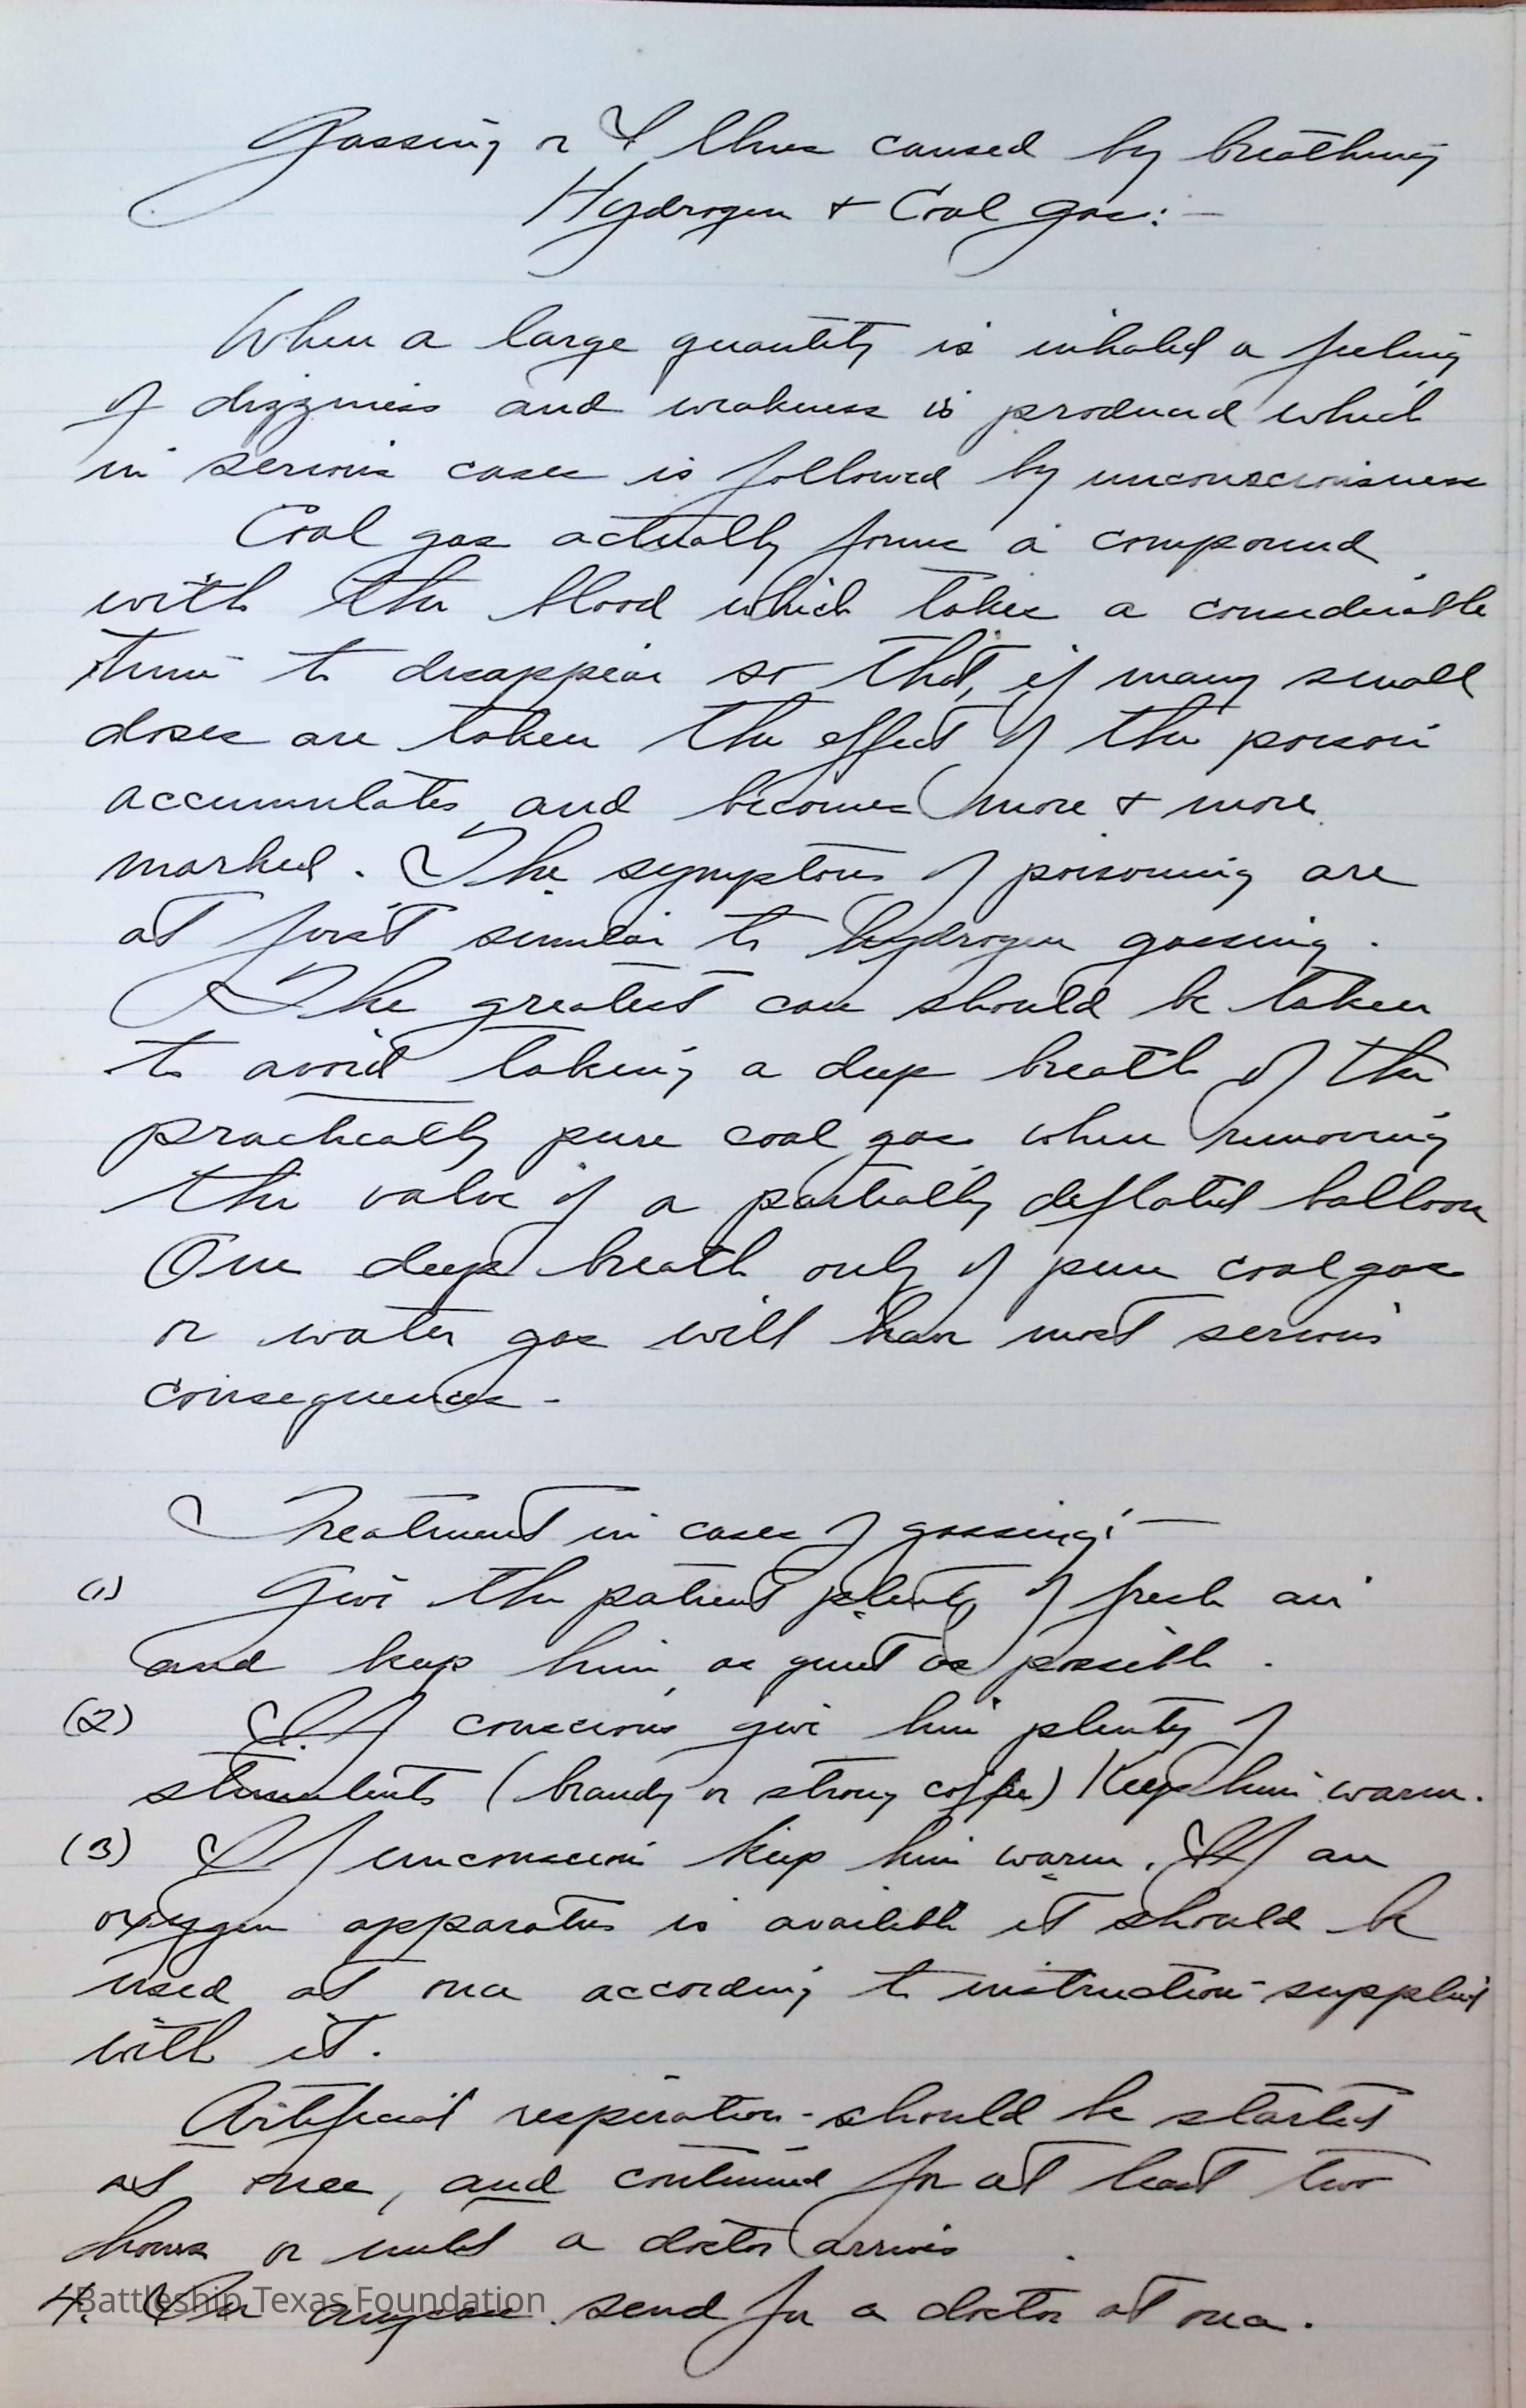 Gassing or Illness caused by breathing
Hydrogen + Coal gas:-
When a large quantity is inhaled a feeling
of dizziness and weakness is produced which
in serious cases is followed by unconsciousness
Coal gas actually forms a compound
with the blood which takes a considerable
time to disappear so that, if many small
doses are taken the effect of the poison
accumulates and becomes more + more
marked. The symptoms of poisoning are
at first similar to hydrogen gassing.
The greatest care should be taken
to avoid taking a deep breath of the
practically pure coal gas when removing
the valve of a partially deflated balloon
One deep breath only of pure coal gas
or water gas will have most serious
consequences -
Treatment in cases of gassing:-
(1) Give the patient plenty of fresh air
and keep him as quiet as possible.
(2) If conscious give him plenty of
stimulents (brandy or strong coffee) Keep him warm.
(3) If unconscious keep him warm. If an
oxygen apparatus is available it should be
used at once according to instruction supplied
with it.
Artificial respiration - should be started
at once, and continued for at least two
hours or until a doctor arrives.
4. In any case send for a doctor at once.
Battleship Texas Foundation